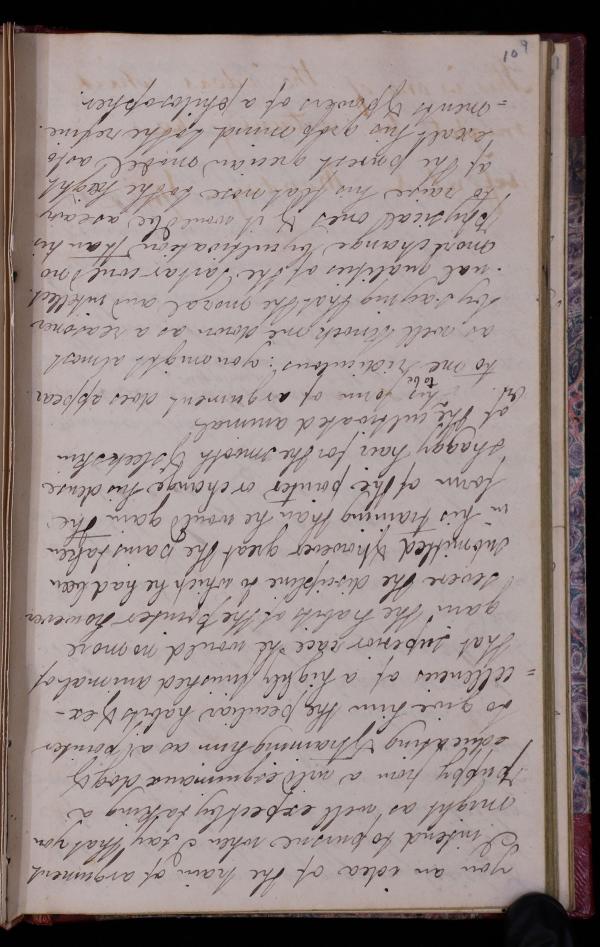 you an idea of the train of argument
I intend to pursue when I say that you
might as well expect by taking a
puppy from a wild esquimaux dog &
educating & training him as a pointer
to give him the peculiar habits & ex-
=cellencies of a highly finished animal of
that superior race he would no more
gain the habits of the pointer however
severe the discipline to which he had been
submitted & however great the pains taken
in his training than he would gain the
form of the pointer or change his dense
shaggy hair for the smooth & sleek skin
of the cultivated animal.
Crit. This form of argument does appear
to be
to me ridiculous: you might almost
as well knock me down as a reasoner
by saying that the moral and intellect
-ual qualities of the Tartar could no
more change by cultivation than his
physical ones & it would be as easy
to raise his flat nose to the height
of the purest grecian model as to
exalt his gross mind to the refine
=ments & powers of a philosopher.
109